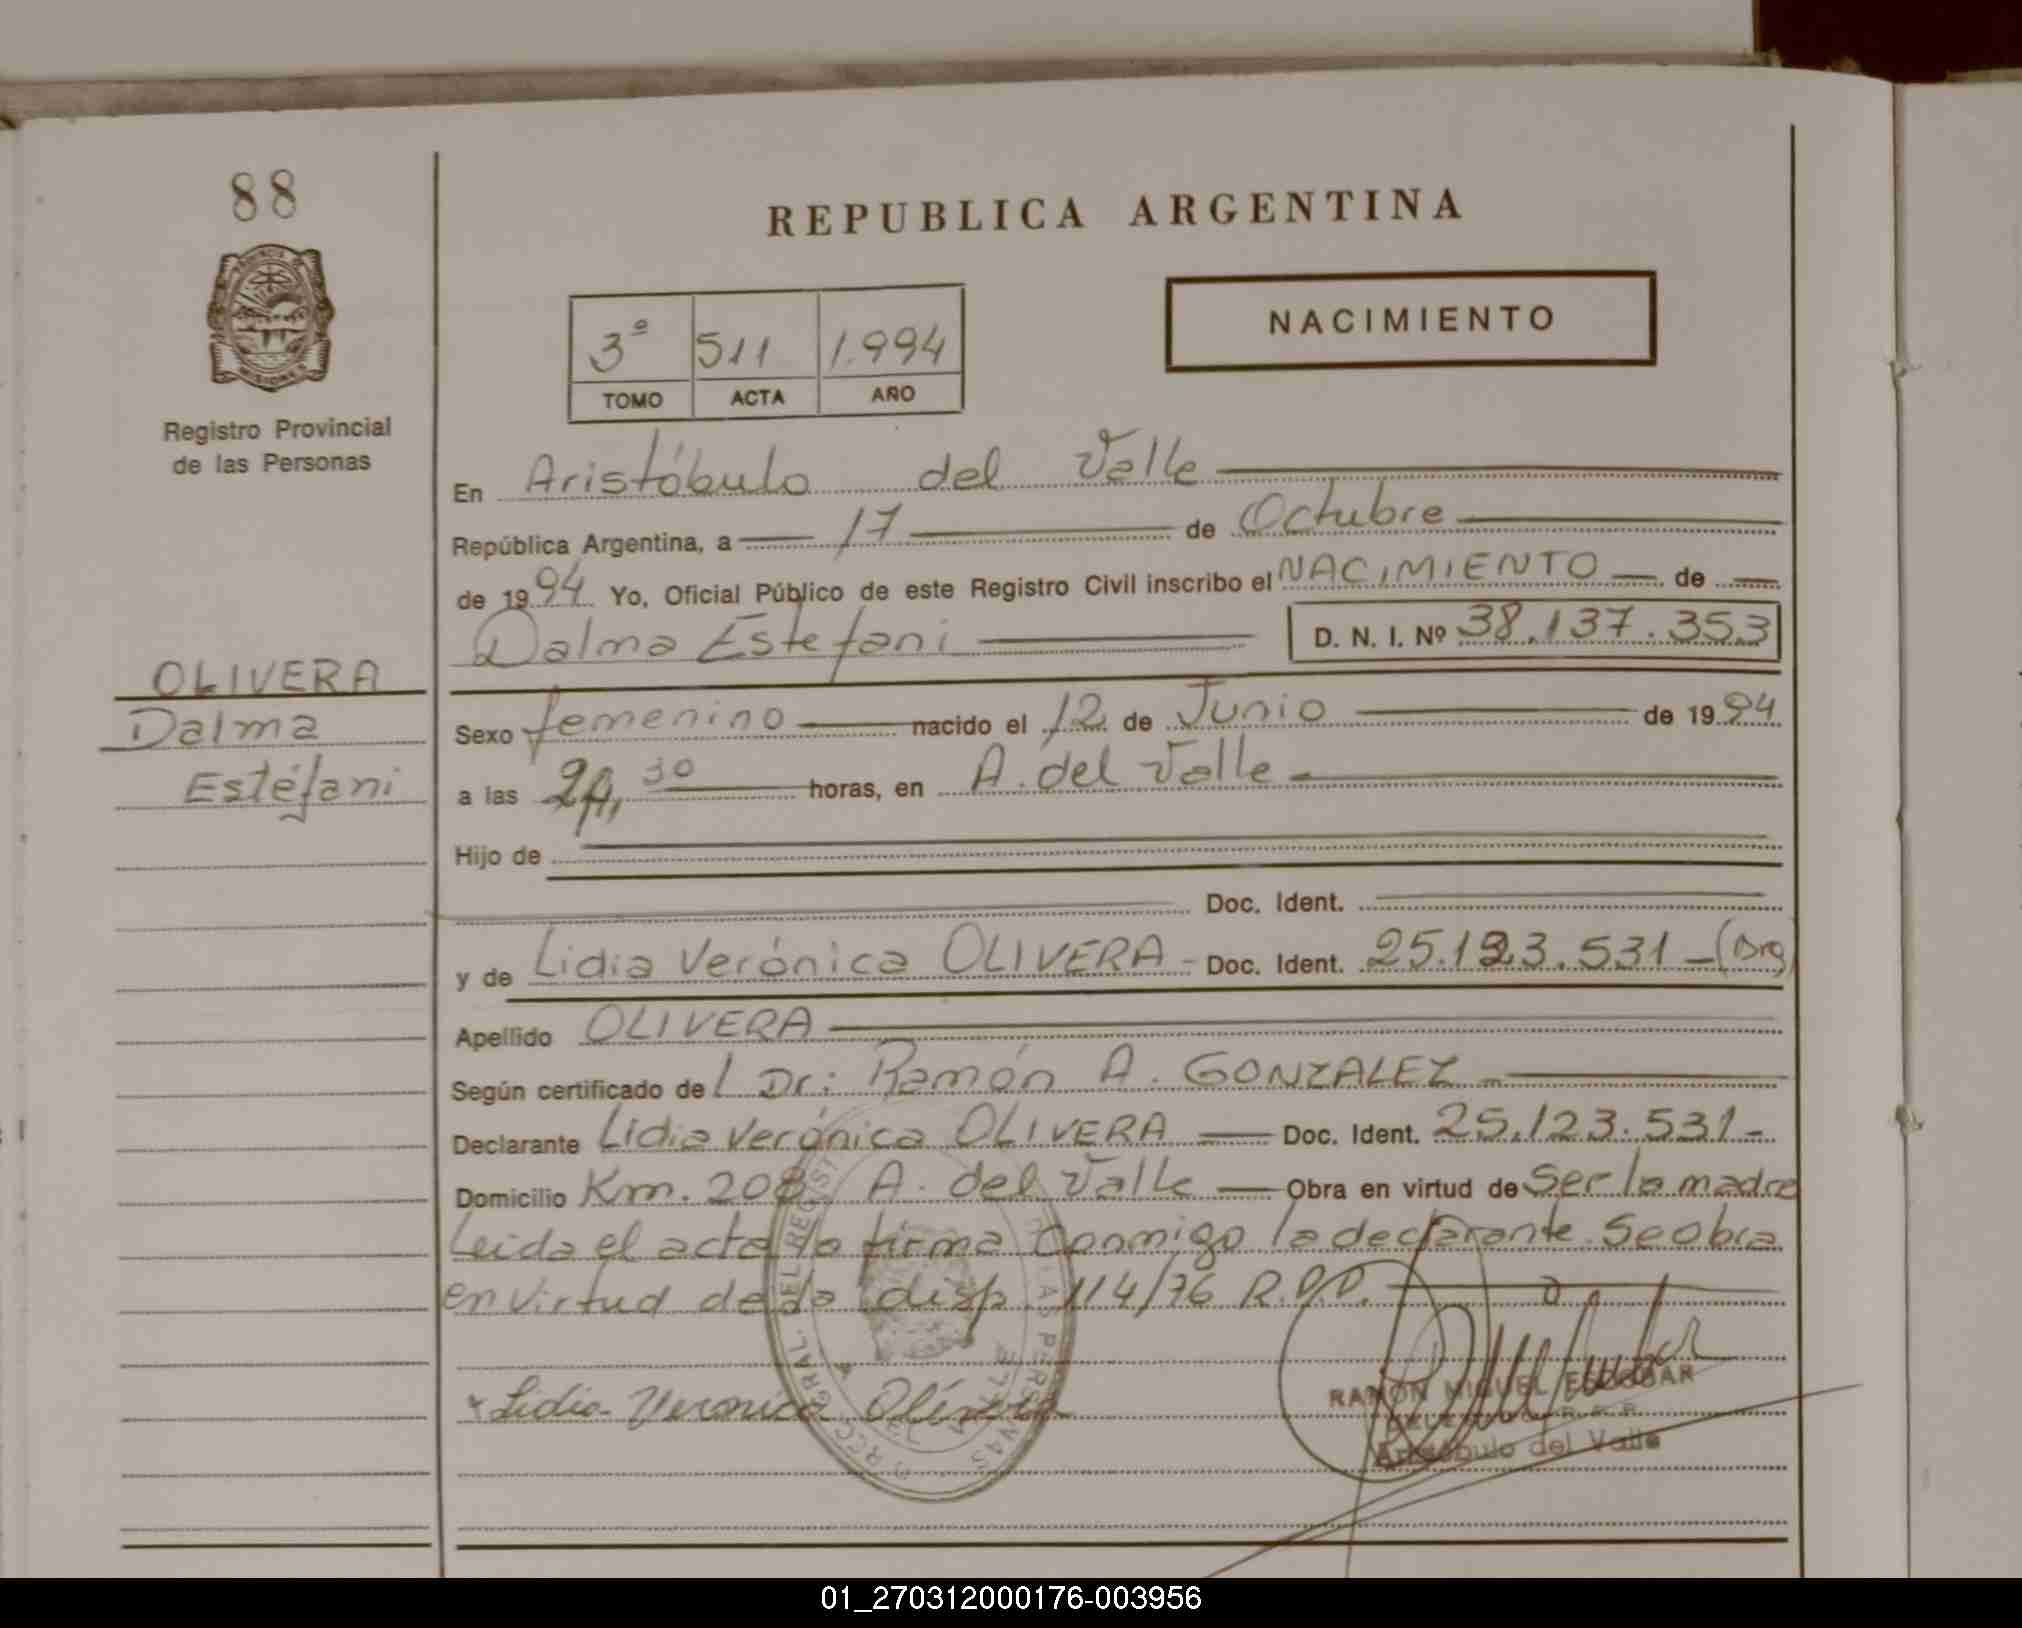 88
REPUBLICA ARGENTINA
NACIMIENTO
3º 511 1.994
TOMO ACTA AÑO
MISIONES
Registro Provincial
de las Personas
En Aristóbulo del Valle
República Argentina, a 17 de Octubre
de 1994 Yo, Oficial Público de este Registro Civil inscribo el NACIMIENTO de
Dalma Estefani D. N. I. Nº 38.137.353
OLIVERA
Dalma
Estéfani
Sexo femenino nacido el 12 de Junio de 1994
a las 30 horas, en A. del Valle
Hijo de
Doc. Ident.
y de Lidia Verónica OLIVERA - Doc. Ident. 25.123.531 - (Arg)
Apellido OLIVERA
Según certificado del Dr: Ramón A. GONZALEZ
Declarante Lidia Verónica OLIVERA Doc. Ident. 25.123.531 -
Domicilio Km. 208 A. del Valle Obra en virtud de Ser la madre
Leida el acta la firma conmigo la declarante. Se obra
en virtud de la disp. 114/76 R.P.P.
Lidia Veronica Olivera
RAMON MIGUEL ESCOBAR
Aristóbulo del Valle
01_270312000176-003956